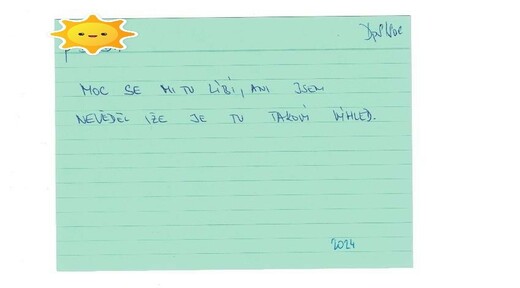 MOC SE MI TU LÍBÍ, ANI JSEM
NEVĚDĚL IŽE JE TU TAKOVÍ VÍHLED.
2024